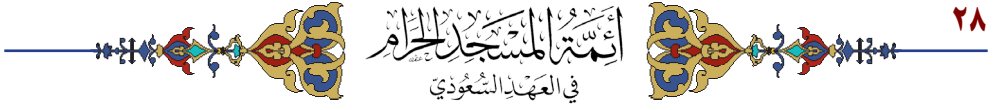 ٢٨
أَئِمَّةُ المَسْجِدِ الحَرَامِ
فِي العَهْدِ السُّعُودِيّ